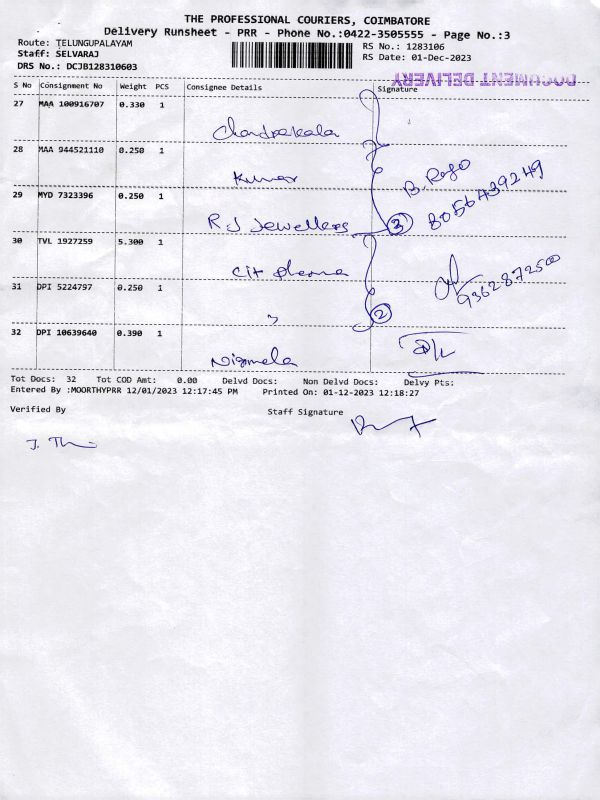 THE PROFESSIONAL COURIERS, COIMBATORE
Delivery Runsheet - PRR - Phone No.:0422-3505555 - Page No.:3
Route: TELUNGUPALAYAM
Staff: SELVARAJ
DRS No.: DCJB128310603
RS No.: 1283106
RS Date: 01-Dec-2023
DOCUMENT DELIVERY
S No Consignment No Weight PCS Consignee Details Signature
27 MAA 100916707 0.330 1
Chandrakala
28 MAA 944521110 0.250 1
Kumar
29 MYD 7323396 0.250 1
R J Jewellers 3 8056439249
30 TVL 1927259 5.300 1
Cit pharma 9362872500
31 DPI 5224797 0.250 1
" 2
32 DPI 10639640 0.390 1
Nirmala D/L
Tot Docs: 32 Tot COD Amt: 0.00 Delvd Docs: Non Delvd Docs: Delvy Pts:
Entered By :MOORTHYPRR 12/01/2023 12:17:45 PM Printed On: 01-12-2023 12:18:27
Verified By Staff Signature